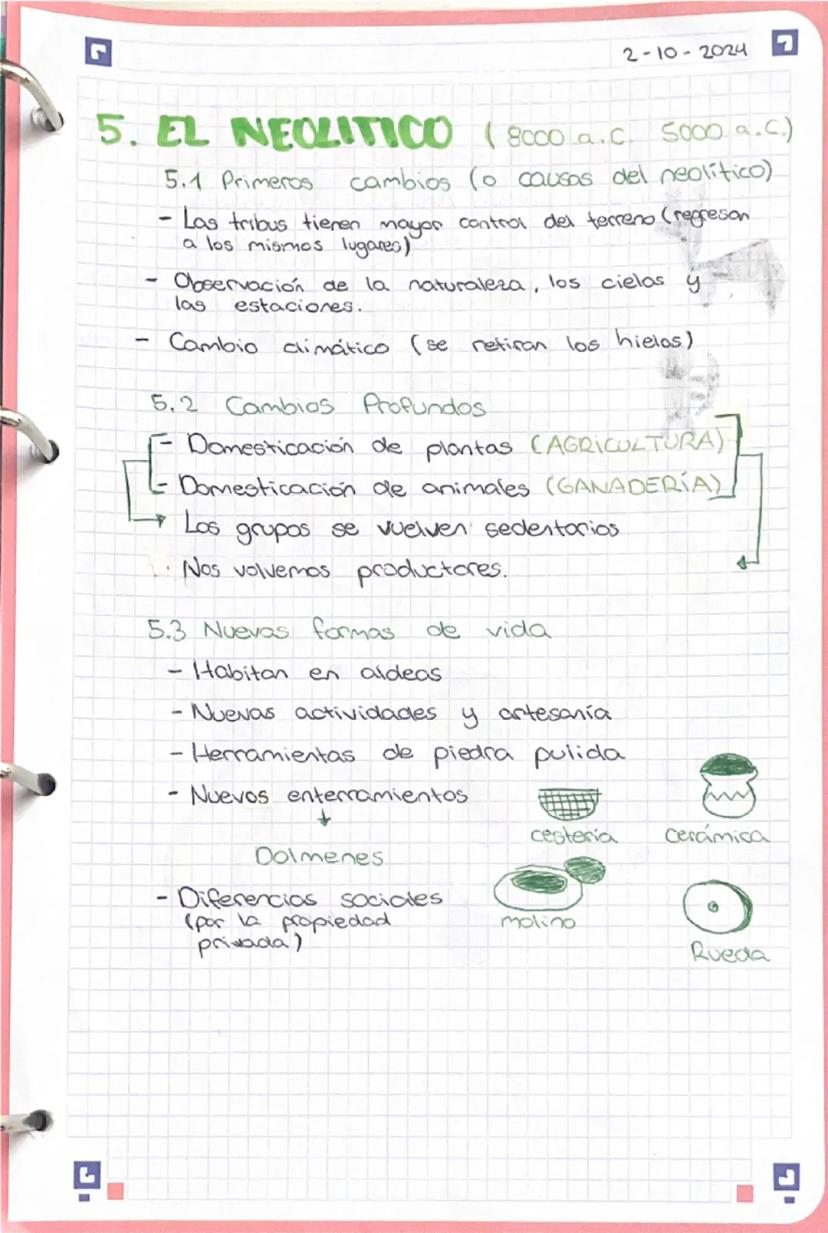 2-10-2024
5. EL NEOLITICO (8000 a.C. 5000 a.C.)
5.1 Primeros cambios (o causas del neolítico)
- Las tribus tienen mayor control del terreno (regresan
a los mismos lugares)
- Observación de la naturaleza, los cielos y
las estaciones.
- Cambio climático (se retiran los hielos)
5.2 Cambios Profundos
- Domesticación de plantas (AGRICULTURA)
- Domesticación de animales (GANADERÍA)
Los grupos se vuelven sedentarios
· Nos volvemos productores.
5.3 Nuevas formas de vida
- Habitan en aldeas
- Nuevas actividades y artesanía
- Herramientas de piedra pulida
- Nuevos enterramientos
cestería cerámica
Dolmenes
- Diferencias sociales
(por la propiedad
privada)
molino
Rueda